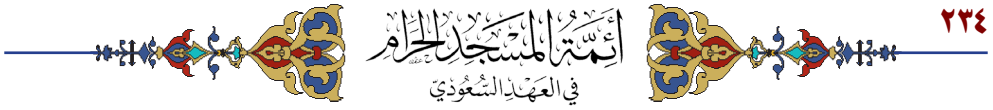 ٢٣٤
أَئِمَّةُ المَسْجِدِ الحَرَامِ
في العَهْدِ السُّعُودِيّ